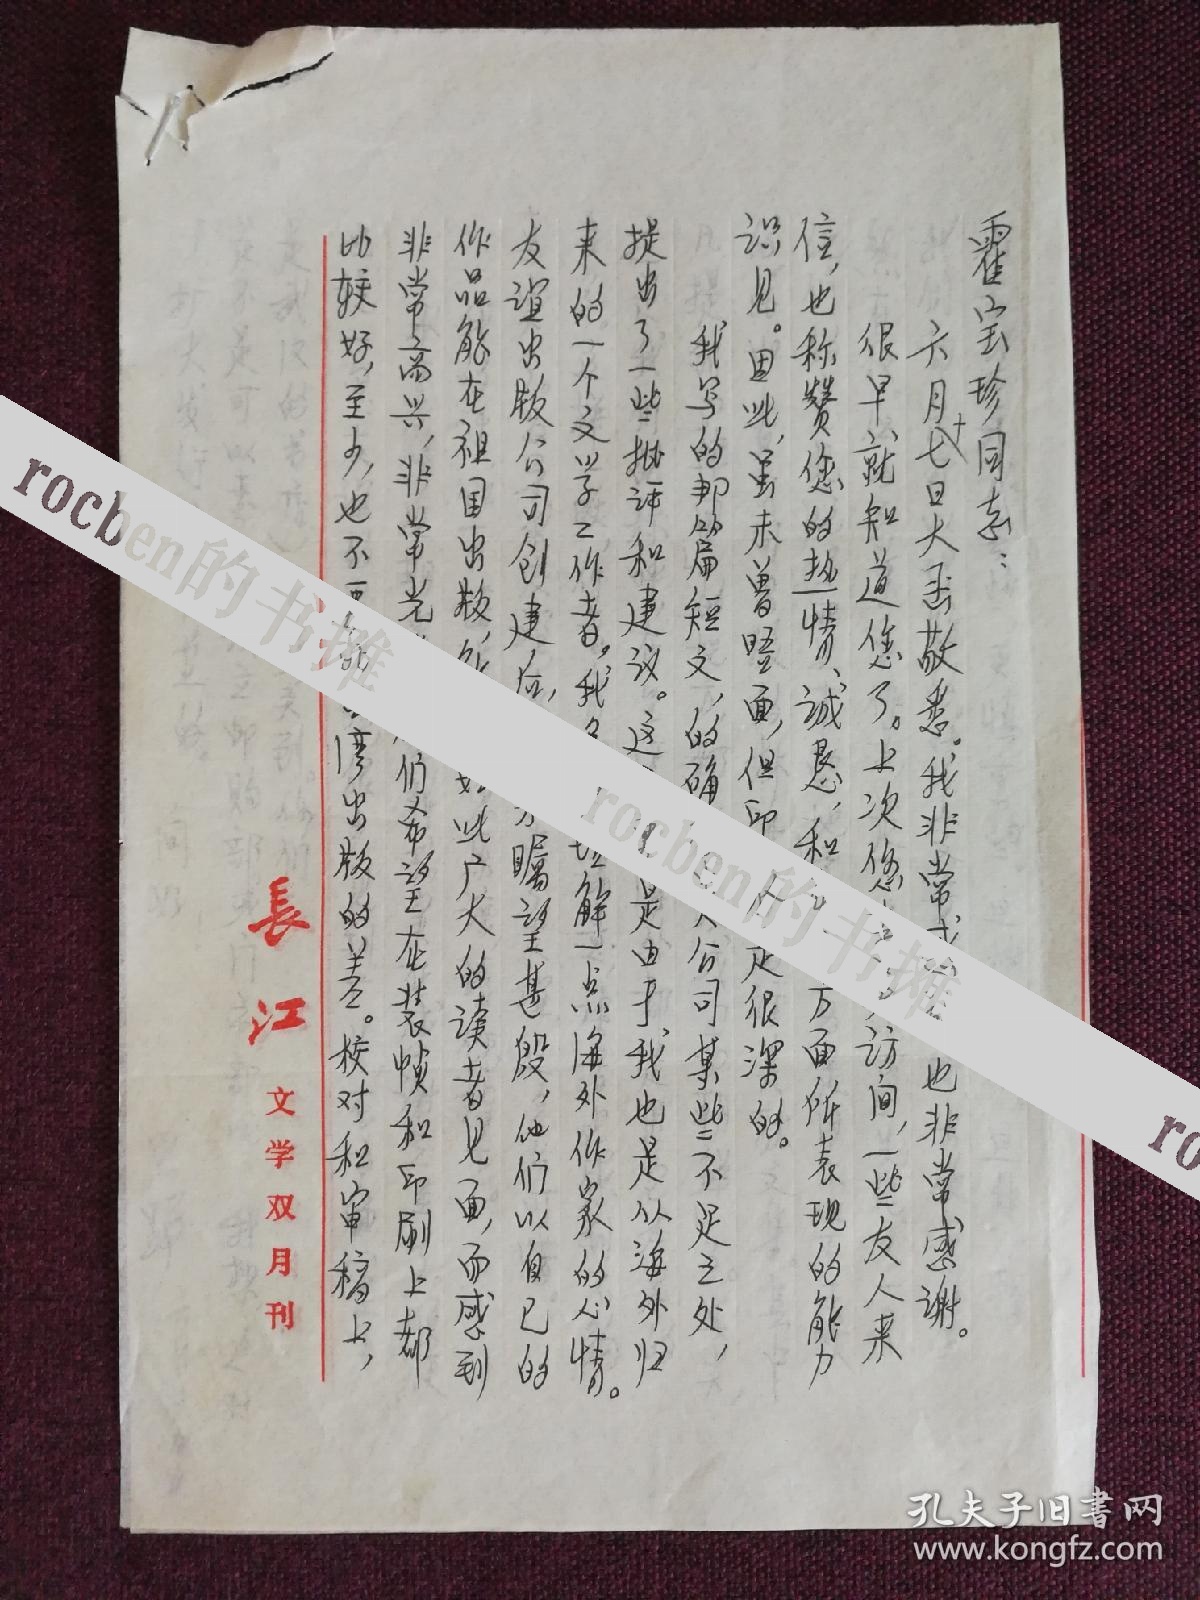 霍宝珍同志：
六月十七日大函敬悉。我非常 也非常感谢。
很早就知道您了。上次您 访问，一些友人来
信，也称赞您的热情、诚恳，和 方面所表现的能力
识见。因此，虽未曾晤面，但印 是很深的。
我写的那篇短文，的确 公司某些不足之处，
提出了一些批评和建议。这 是由于我也是从海外归
来的一个文学工作者。我 理解一点海外作家的心情。
友谊出版公司创建后， 瞩望甚殷，他们以自己的
作品能在祖国出版， 如此广大的读者见面，而感到
非常高兴，非常光 们希望在装帧和印刷上都
比较好，至少，也不要 湾出版的差。校对和审稿上，
長江 文学双月刊
rocben的书摊
rocben的书摊
rocb
孔夫子旧書网
www.kongfz.com